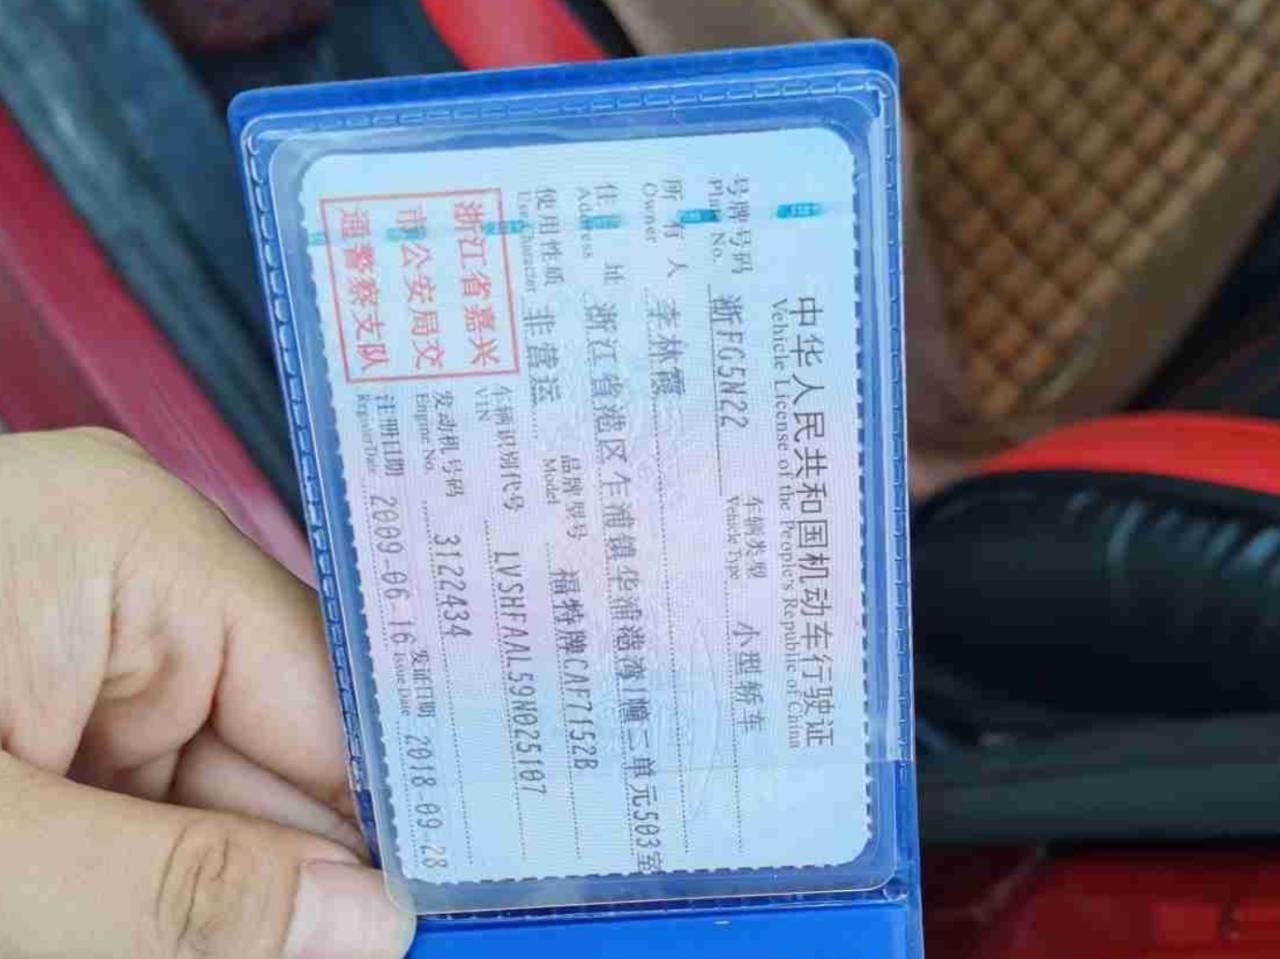 中华人民共和国机动车行驶证
Vehicle License of the People's Republic of China
号牌号码 浙FG5N22 车辆类型 小型轿车
Plate No. Vehicle Type
所有人 李林霞
Owner
住址 浙江省港区乍浦镇华浦港湾1幢二单元503室
Address
使用性质 非营运 品牌型号 福特牌CAF7152B
Use Character Model
浙江省嘉兴
市公安局交
通警察支队
车辆识别代号 LVSHFAAL59N025107
VIN
发动机号码 3122434
Engine No.
注册日期 2009-06-16 发证日期 2018-09-28
Register Date Issue Date